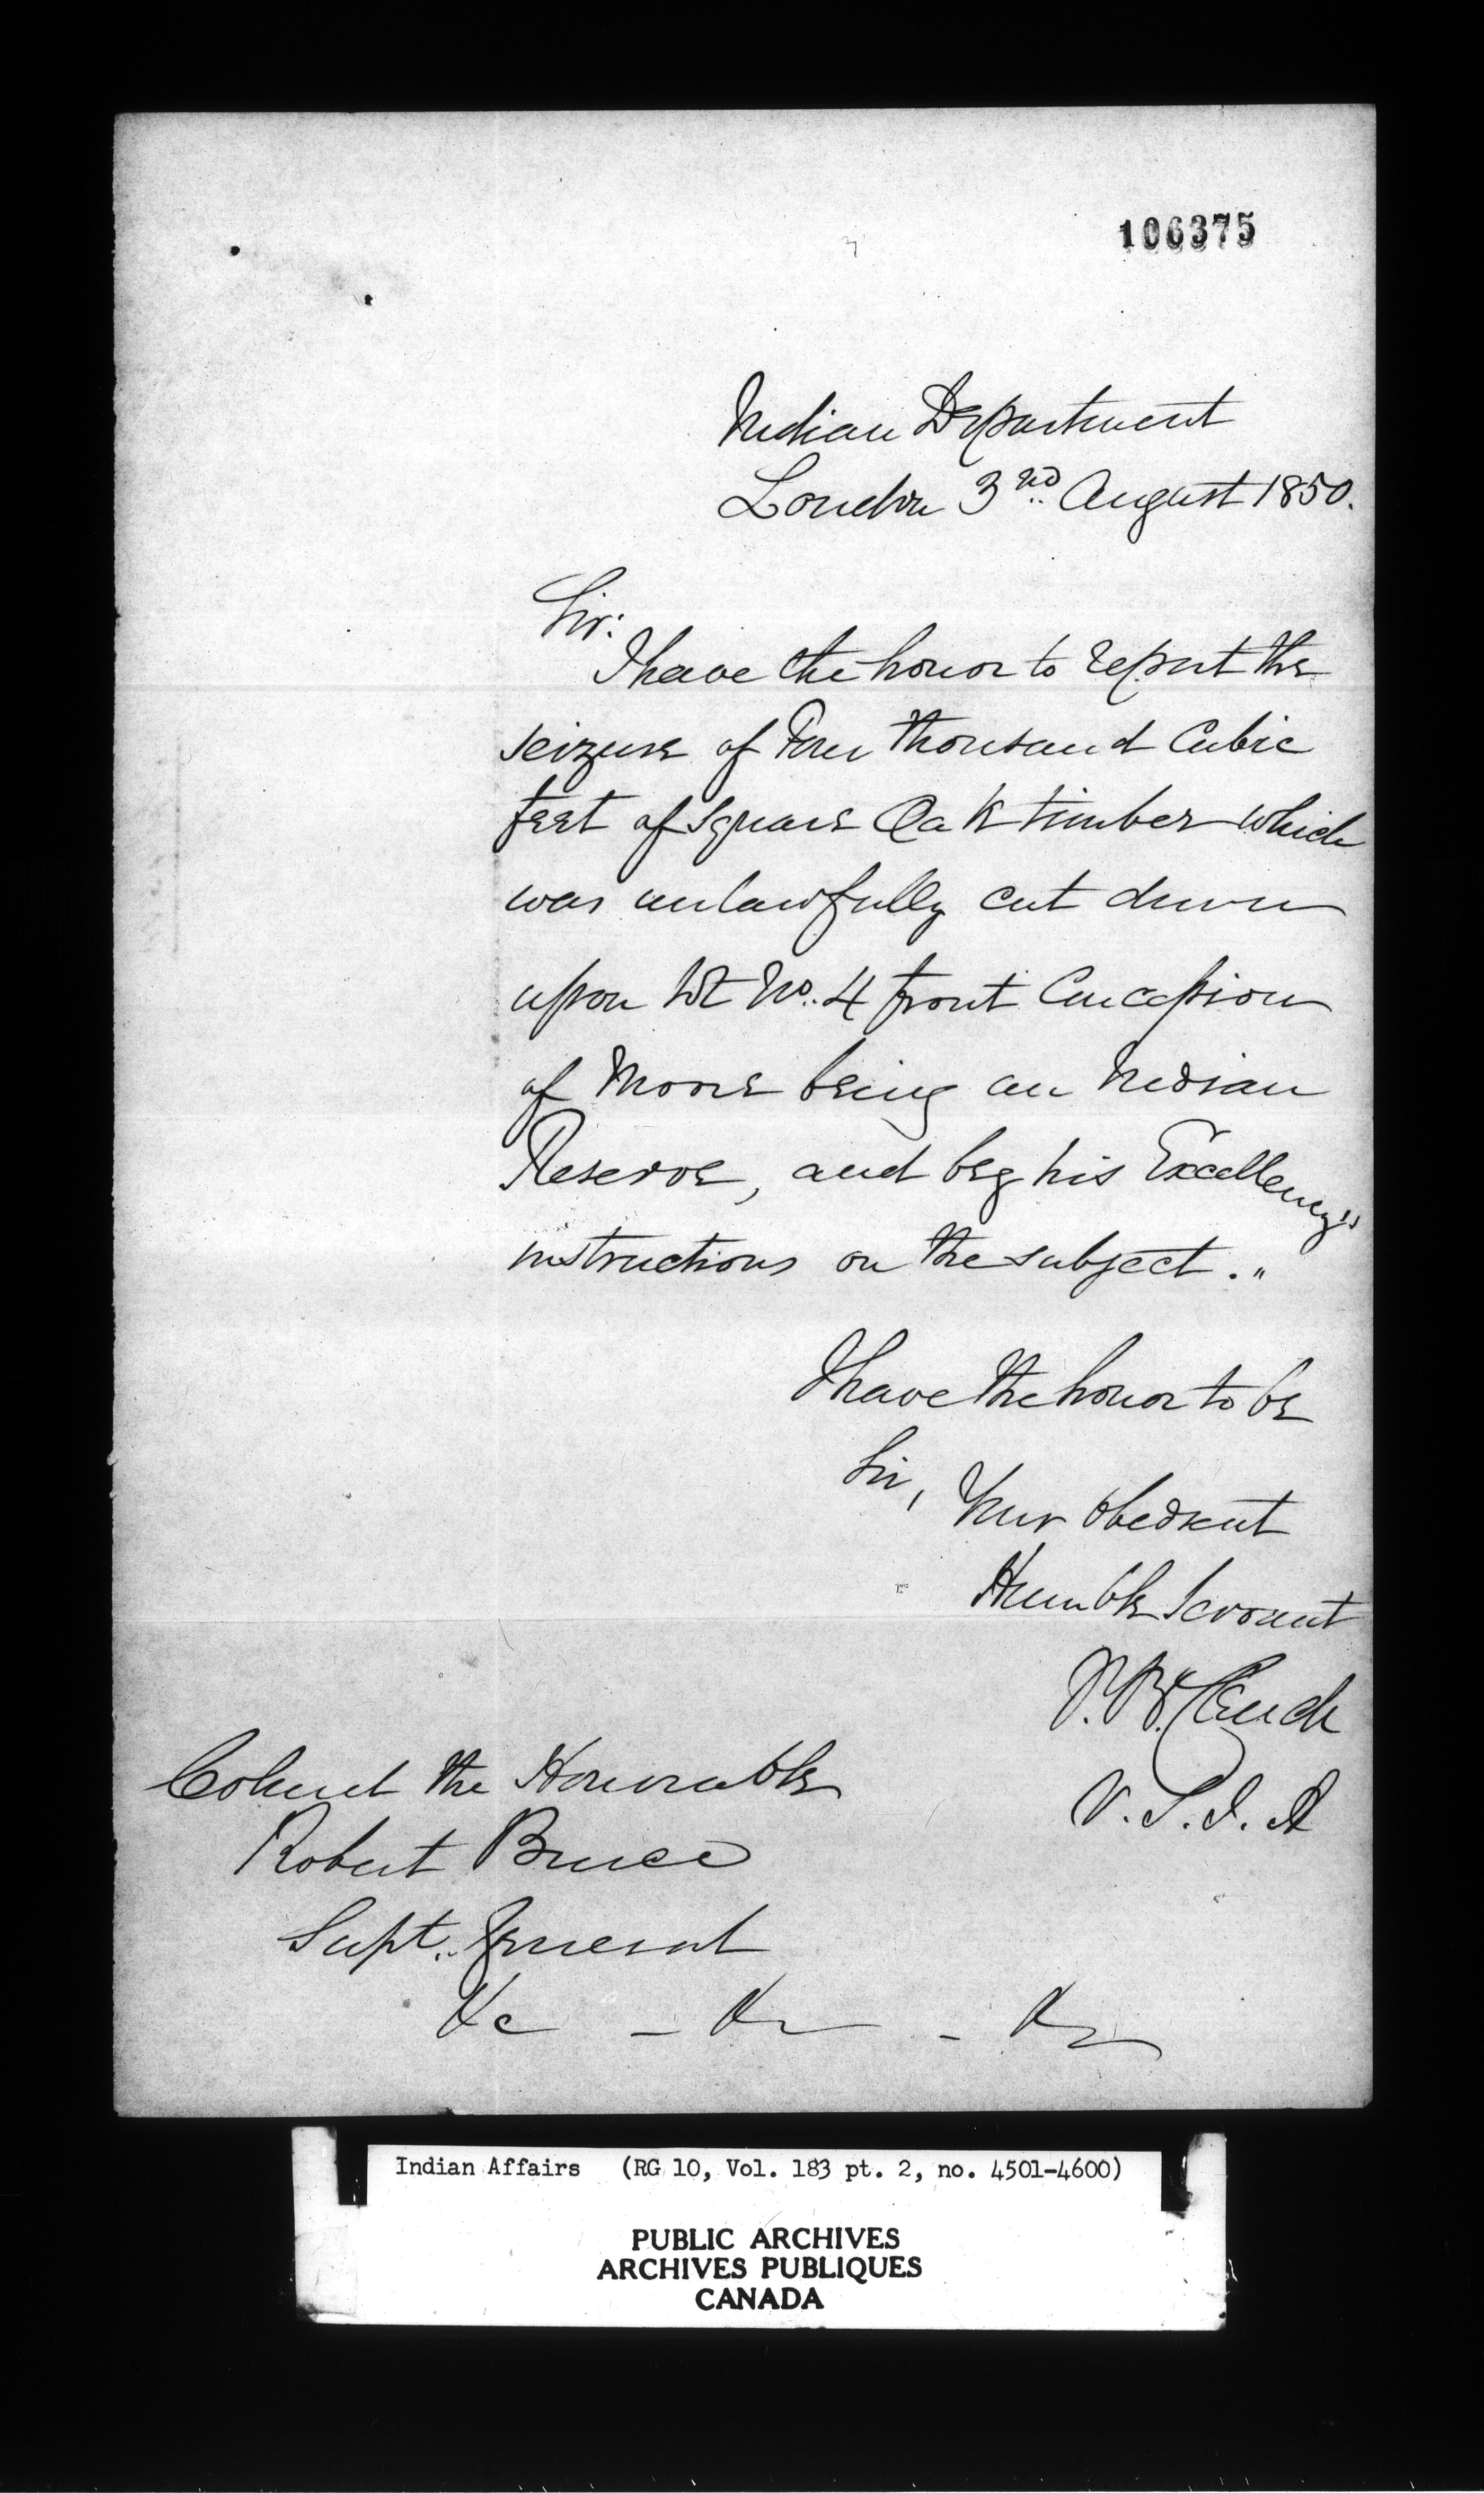 106375
Indian Department
London 3rd August 1850.
Sir:
I have the honor to report the
seizure of Four thousand Cubic
feet of Square Oak timber which
was unlawfully cut down
upon lot No. 4 front Concession
of Moore being an Indian
Reserve, and beg his Excellency's
instructions on the subject."
I have the honor to be
Sir,
Your obedient
Humble Servant
J. B. Clench
V. S. I. A
Colonel the Honorable
Robert Bruce
Supt. General
&c - &c - &c
Indian Affairs (RG 10, Vol. 183 pt. 2, no. 4501-4600)
PUBLIC ARCHIVES
ARCHIVES PUBLIQUES
CANADA